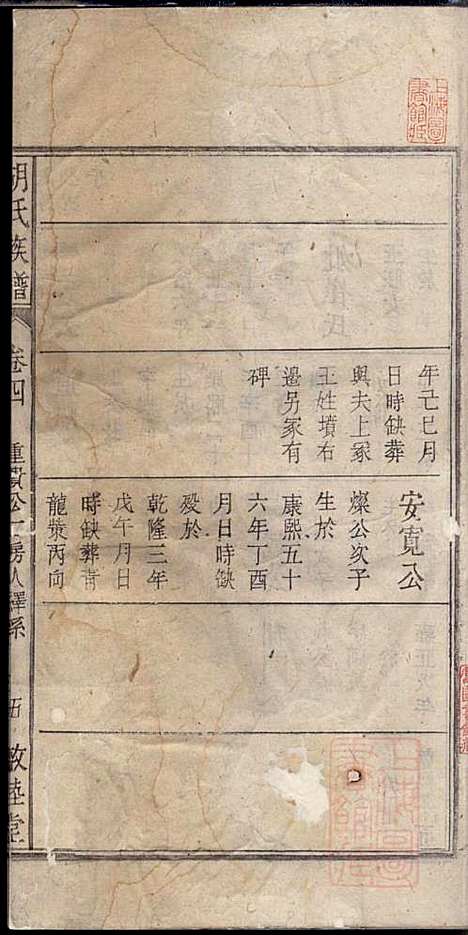 年己巳月
日時缺葬
與夫上冢
王姓墳右
邉另冢有
碑
安寬公
燦公次子
生於
康熙五十
六年丁酉
月日時缺
殁於
乾隆三年
戊午月日
時缺葬青
龍蕩丙向
胡氏族譜
卷四
重貴公一房人繹系
五
敦睦堂
上海圖書館藏